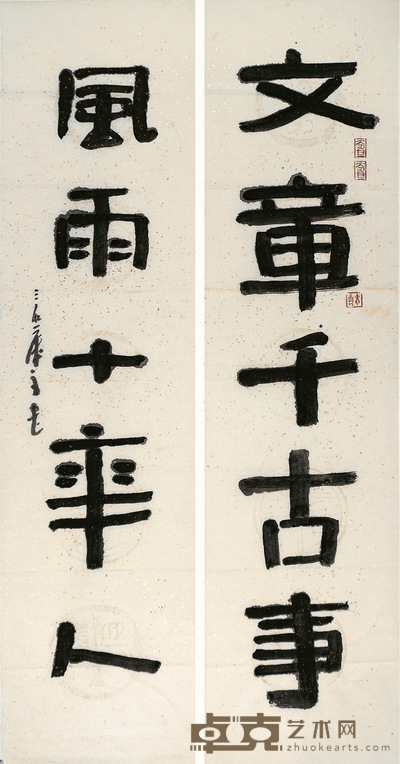 文章千古事
風雨十年人
卓克艺术网
zhuokearts.com